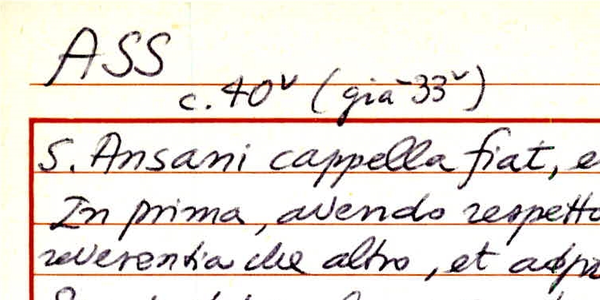 ASS
c. 40v (già 33v)
S. Ansani cappella fiat, e
In prima, avendo respetto
reverentia che altro, et